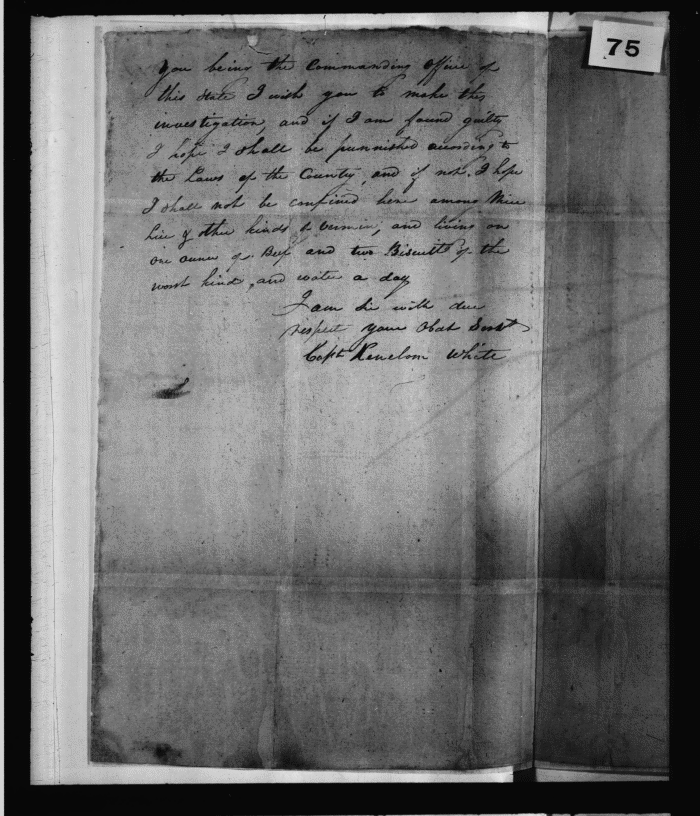 75
you being the Commanding Officer of
this State I wish you to make this
investigation, and if I am found guilty
I hope I shall be punnished according to
the Laws of the Country, and if not, I hope
I shall not be confined here among Mice
lice & other kinds of vermin, and living on
one ounce of Beef and two Biscuitts of the
worst kind, and water a day
I am Sir with due
respect your Obdt Servt
Capt. Kenelom White